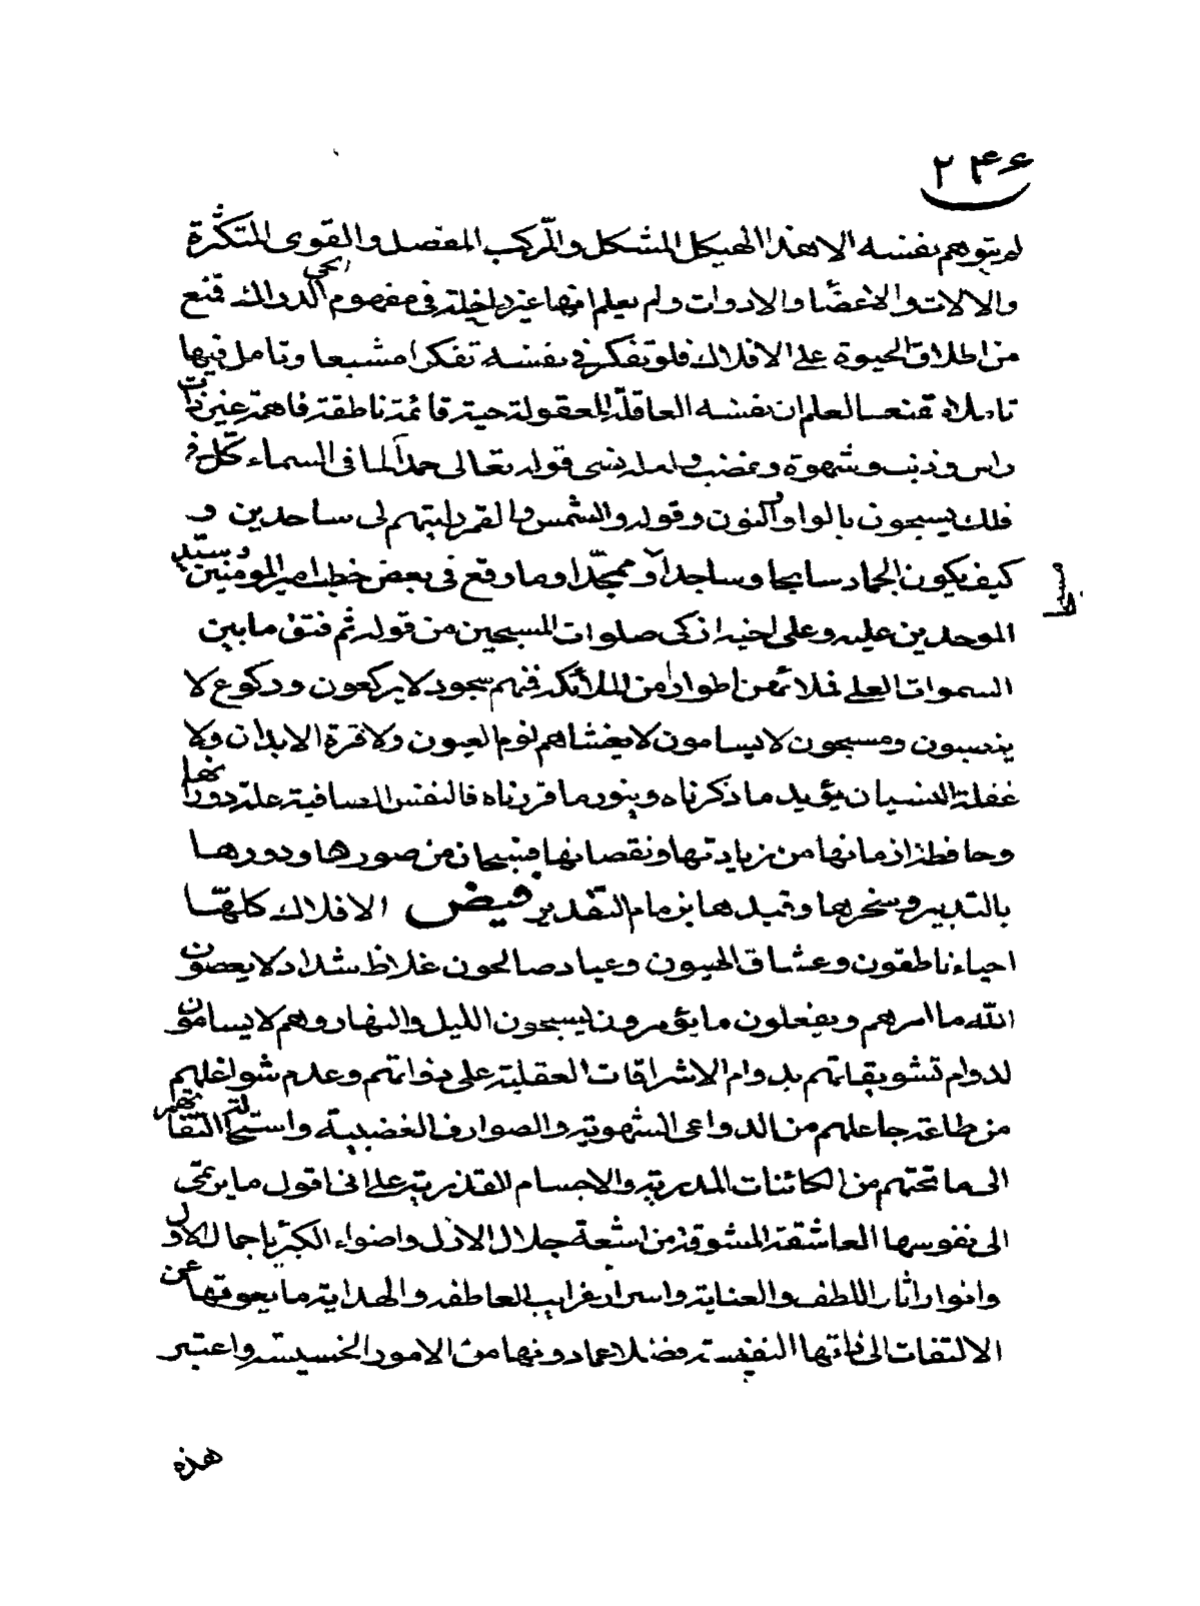 ۲۴۶
لم يتوهم بنفسه الا هذا الهيكل المشكل والمركب المفصل والقوى المتكثرة
والالات والاعضا والادوات ولم يعلم انها غير داخلة فى مفهوم الحى الدراك فمنع
من اطلاق الحيوة على الافلاك فلو تفكر فى نفسه تفكرا مشبعا وتامل فيها
تاملا لعلم ان نفسه العاقلة المعقولة حية قائمة ناطقة فاهمة غير ذات
راس وذنب وشهوة وغضب ولعله نسى قوله تعالى فى السماء كل فى
فلك يسبحون بالواو والنون وقوله والشمس والقمر رايتهم لى ساجدين و
كيف يكون الجماد سابحا وساجدا وممجدا وما وقع فى بعض خطب امير المؤمنين وسيد
الموحدين عليه وعلى اخيه ازكى صلوات المسبحين من قوله ثم فتق ما بين
السموات العلى فملائهن اطوارا من الملائكة فمنهم سجود لا يركعون وركوع لا
ينتصبون ومسبحون لا يسامون لا يغشاهم نوم العيون ولا فترة الابدان ولا
غفلة النسيان يؤيد ما ذكرناه وينور ما قررناه فالنفس السافية علة دورانها
وحافظة ازمانها من زيادتها ونقصانها فسبحان من صورها ودورها
بالتدبير وسخرها وقيدها بزمام التقدير فيض الافلاك كلها
احياء ناطقون وعشاق الهيون وعباد صالحون غلاظ شداد لا يعصون
الله ما امرهم ويفعلون ما يؤمرون يسبحون الليل والنهار وهم لا يسامون
لدوام تشويقاتهم بدوام الاشراقات العقلية على ذواتهم وعدم شواغلهم
من طاعة جاعلهم من الدواعى الشهوية والصوارف الغضبية واستحالة التفاتهم
الى ما تحتهم من الكائنات المدرية والاجسام القذرية على انى اقول ما يرتمى
الى نفوسها العاشقة المشوقة من اشعة جلال الازل واضواء الكبريا جمال الاول
وانوار اثار اللطف والعناية واسرار غرايب العاطفه والهداية ما يعوقها عن
الالتفات الى ذاتها النفيسة فضلا عما دونها من الامور الخسيسة واعتبر
هذه